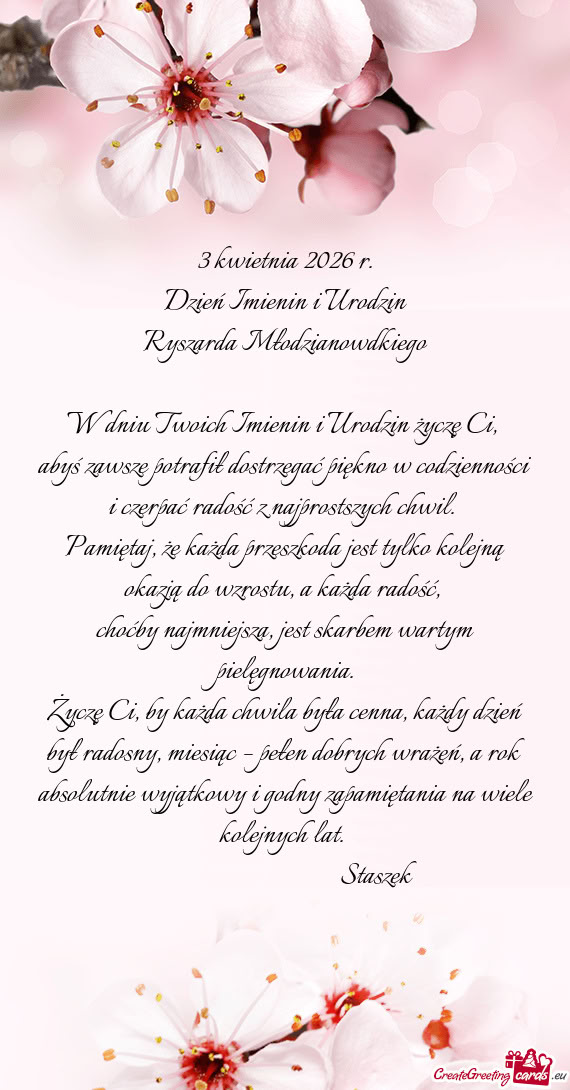 3 kwietnia 2026 r.
Dzień Imienin i Urodzin
Ryszarda Młodzianowdkiego
W dniu Twoich Imienin i Urodzin życzę Ci,
abyś zawsze potrafił dostrzegać piękno w codzienności
i czerpać radość z najprostszych chwil.
Pamiętaj, że każda przeszkoda jest tylko kolejną
okazją do wzrostu, a każda radość,
choćby najmniejsza, jest skarbem wartym
pielęgnowania.
Życzę Ci, by każda chwila była cenna, każdy dzień
był radosny, miesiąc – pełen dobrych wrażeń, a rok
absolutnie wyjątkowy i godny zapamiętania na wiele
kolejnych lat.
Staszek
CreateGreetingcards.eu